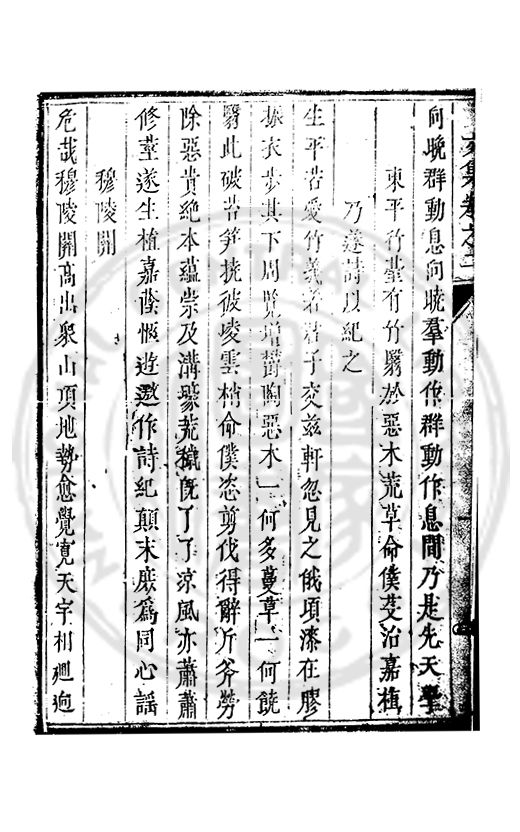 文集卷之二
向晚群動息向曉羣動作群動作息間乃是先天學
東平竹堂有竹翳於惡木荒草命僕芟治嘉植
乃遂詩以紀之
生平若愛竹義若君子交茲軒忽見之俄頃漆在膠
振衣步其下周覽增鬱陶惡木一何多蔓草一何饒
翳此破苔笋撓彼凌雲梢命僕恣剪伐得辭斤斧勞
除惡貴絶本蘊崇及溝壕荒穢旣了了凉風亦蕭蕭
修莖遂生植嘉蔭愜遊遨作詩紀顛末庶為同心謡
穆陵關
危哉穆陵關高出衆山頂地勢愈覺寛天宇相廻逈